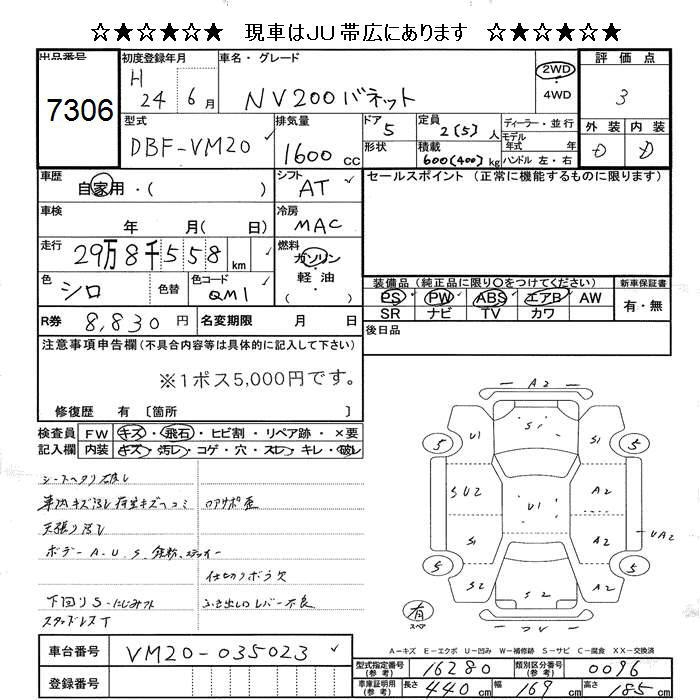 ☆★☆★☆★ 現車はJU帯広にあります ☆★☆★☆★
出品番号 7306
初度登録年月 H 24 6月
車名・グレード NV200バネット
2WD ・ 4WD
評価点 3
外装 D 内装 D
型式 DBF-VM20
排気量 1600 cc
ドア 5
形状
定員 2(5)人
積載 600(400)kg
ディーラー・並行
モデル年式 年
ハンドル 左・右
車歴 自家用・( )
シフト AT
セールスポイント (正常に機能するものに限ります)
車検 年 月( 日)
冷房 MAC
走行 29万8千558 km
燃料 ガソリン 軽油 ( )
色 シロ 色替
色コード QM1
装備品 (純正品に限り〇をつけてください)
PS PW ABS エアB AW
SR ナビ TV カワ
新車保証書 有・無
R券 8,830円 名変期限 月 日
後日品
注意事項申告欄 (不具合内容等は具体的に記入して下さい)
※1ポス5,000円です。
修復歴 有 〔箇所 〕
検査員記入欄
FW キズ・飛石・ヒビ割・リペア跡・×要
内装 キズ・汚レ・コゲ・穴・スレ・キレ・破レ
シートヘタリ破レ
車内キズ汚レ荷室キズヘコミ
ロアサポ歪
天張り汚レ
ボデーA.U.S.鉄粉、
仕切りボウ欠
下回りS・にじみ
ふき出しのレバー不良
スタッドレスT
A2
S1
U1 S1
5 5
SU2 U1 A2
UA2
S1 A2
5 5
S2 S2 S2
有 スペア
A-キズ E-エクボ U-凹み W-補修跡 S-サビ C-腐食 XX-交換済
車台番号 VM20-035023
登録番号
型式指定番号(参考) 16280 類別区分番号(参考) 0096
車庫証明用(参考) 長さ 440cm 幅 169cm 高さ 185cm